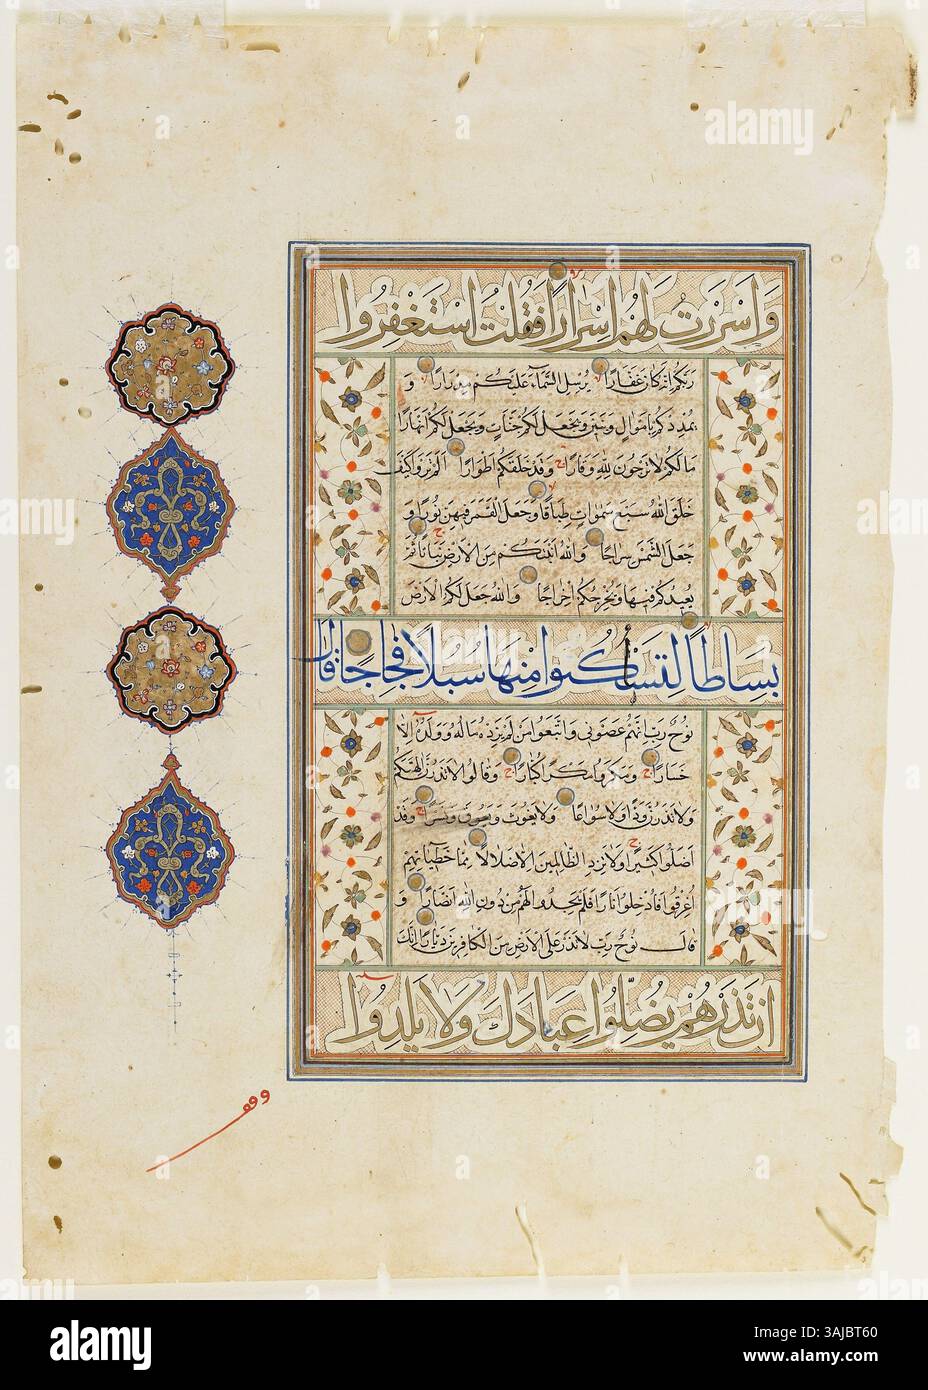 وَاَسْرَرْتُ لَهُمْ اِسْرَارًا فَقُلْتُ اسْتَغْفِرُوا
رَبَّكُمْ اِنَّهُ كَانَ غَفَّارًا يُرْسِلِ السَّمَآءَ عَلَيْكُمْ مِدْرَارًا وَ
يُمْدِدْكُمْ بِاَمْوَالٍ وَبَنِينَ وَيَجْعَلْ لَكُمْ جَنَّاتٍ وَيَجْعَلْ لَكُمْ اَنْهَارًا
مَا لَكُمْ لَا تَرْجُونَ لِلّٰهِ وَقَارًا وَقَدْ خَلَقَكُمْ اَطْوَارًا اَلَمْ تَرَوْا كَيْفَ
خَلَقَ اللهُ سَبْعَ سَمٰوَاتٍ طِبَاقًا وَجَعَلَ الْقَمَرَ فِيهِنَّ نُورًا وَ
جَعَلَ الشَّمْسَ سِرَاجًا وَاللهُ اَنْبَتَكُمْ مِنَ الْاَرْضِ نَبَاتًا ثُمَّ
يُعِيدُكُمْ فِيهَا وَيُخْرِجُكُمْ اِخْرَاجًا وَاللهُ جَعَلَ لَكُمُ الْاَرْضَ
بِسَاطًا لِتَسْلُكُوا مِنْهَا سُبُلًا فِجَاجًا قَالَ
نُوحٌ رَبِّ اِنَّهُمْ عَصَوْنِي وَاتَّبَعُوا مَنْ لَمْ يَزِدْهُ مَالُهُ وَوَلَدُهُ اِلَّا
خَسَارًا وَمَكَرُوا مَكْرًا كُبَّارًا وَقَالُوا لَا تَذَرُنَّ اٰلِهَتَكُمْ
وَلَا تَذَرُنَّ وَدًّا وَلَا سُوَاعًا وَلَا يَغُوثَ وَيَعُوقَ وَنَسْرًا وَقَدْ
اَضَلُّوا كَثِيرًا وَلَا تَزِدِ الظَّالِمِينَ اِلَّا ضَلَالًا مِمَّا خَطِيئَاتِهِمْ
اُغْرِقُوا فَاُدْخِلُوا نَارًا فَلَمْ يَجِدُوا لَهُمْ مِنْ دُونِ اللهِ اَنْصَارًا وَ
قَالَ نُوحٌ رَبِّ لَا تَذَرْ عَلَى الْاَرْضِ مِنَ الْكَافِرِينَ دَيَّارًا اِنَّكَ
اِنْ تَذَرْهُمْ يُضِلُّوا عِبَادَكَ وَلَا يَلِدُوا
وقف
alamy
Image ID: 3AJBT60
www.alamy.com